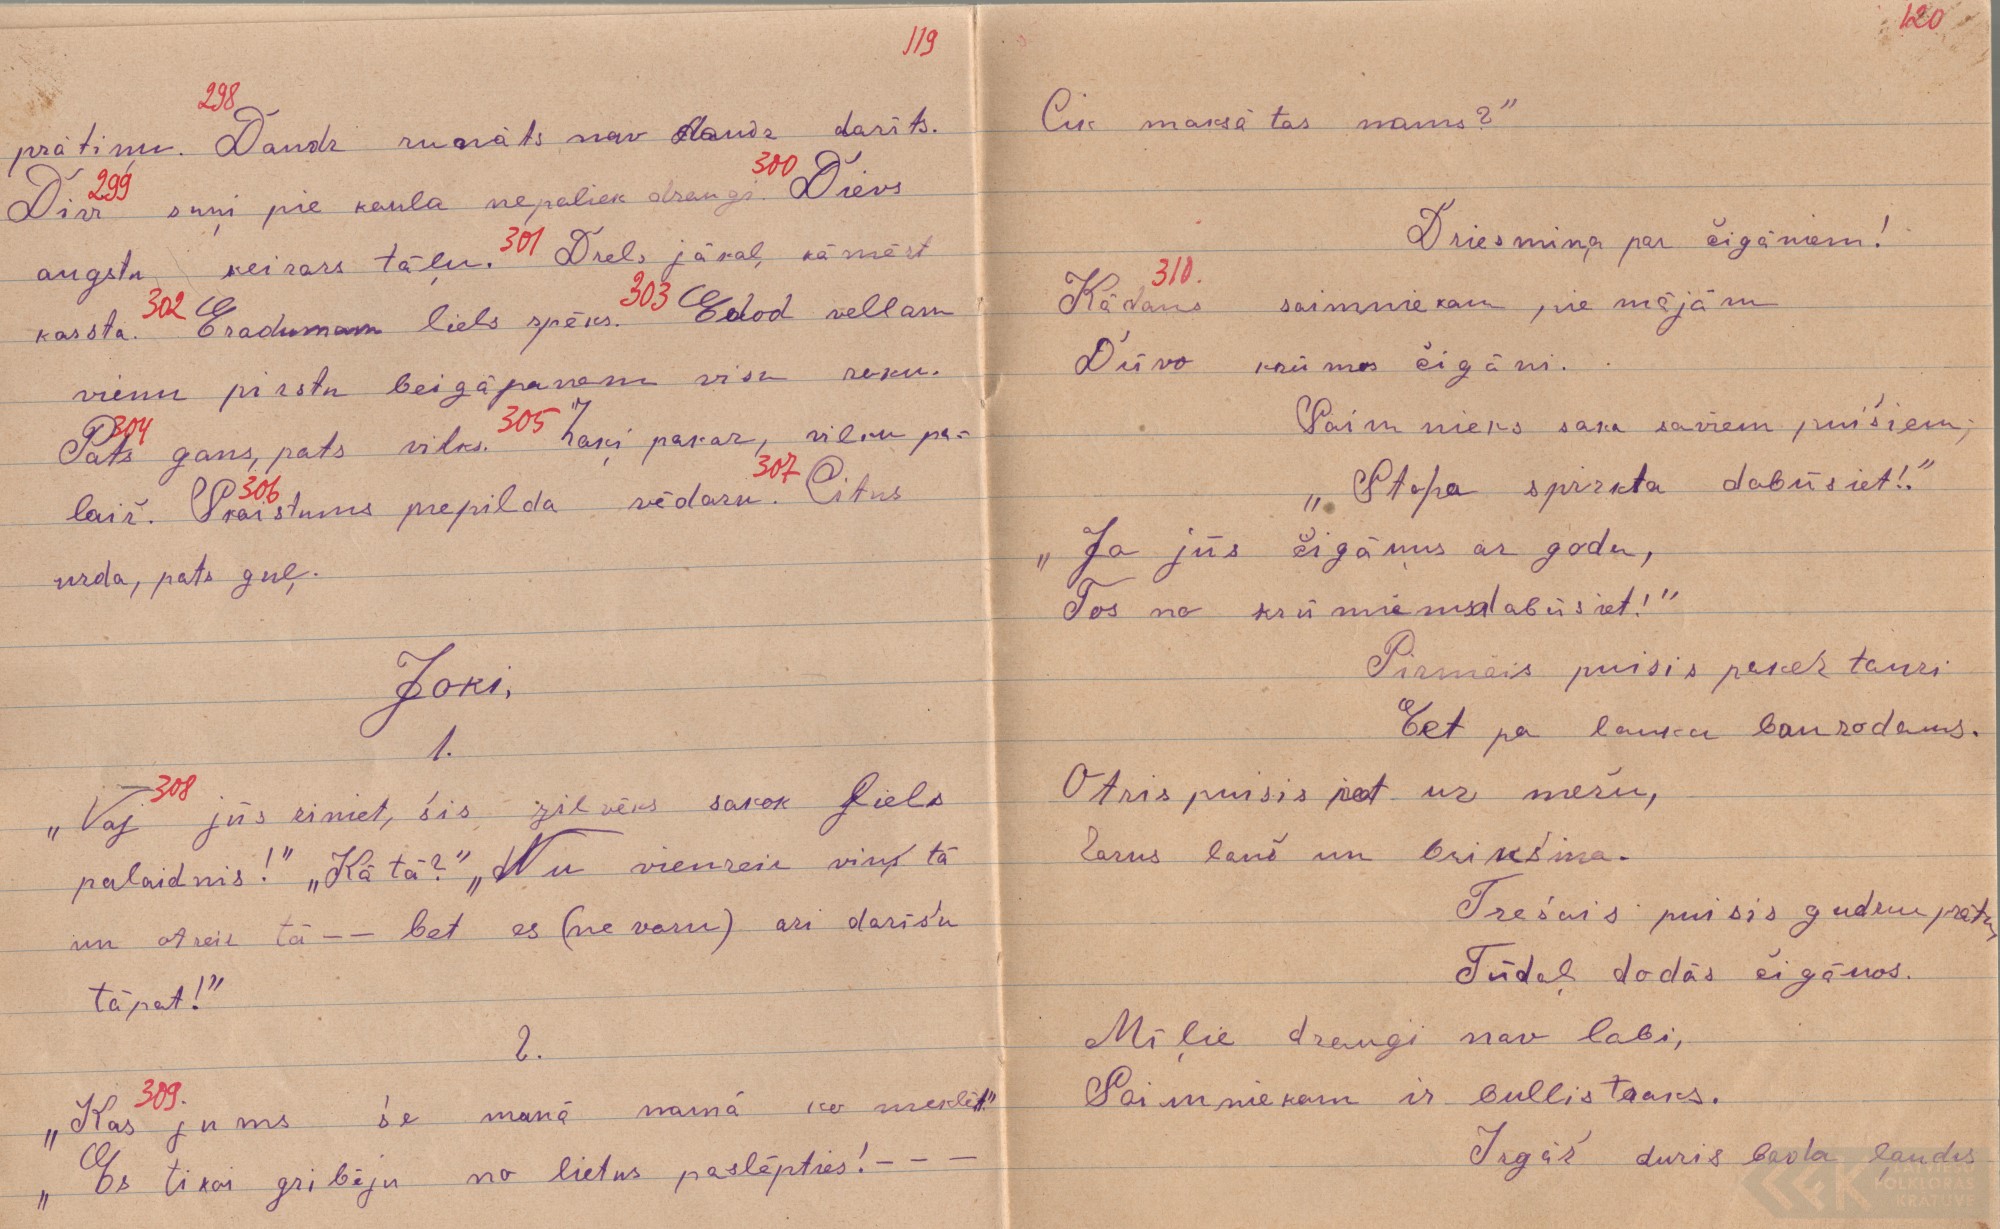 119
298
prātiņu. Daudz runāts nav daudz darīts.
299 300
Divi suņi pie kaula nepaliek draugi. Dievs
301
augstu, ķeizars tāļu. Dzels jākaļ, kāmēr
302 303
karsta. Eradumam liels spēks. Edod vellam
vienu pirstu beigāpaņem visu roku.
304 305
Pats gans, pats vilks. Zaķi pakar, vilku pa-
306 307
laiž. Skaistums nepilda vēdaru. Citus
urda, pats guļ.
Joki,
1.
308
„Vaj jūs ziniet, šis zilvēks sakok liels
palaidnis!” „Kā tā?” „Nu vienreiz viņš tā
un otreiz tā–– bet es (ne varu) ari darīšu
tāpat!”
2.
309.
„Kas jums še manā namā ko meklēt”
„Es tikai gribēju no lietus paslēpties!– – –
120
Cik maksā tas nams?”
Dziesmiņa par čigāniem!
310.
Kādam saimniekam pie mājām
Dzīvo krūmos čigāni.
Saimnieks saka saviem puišiem;
„Stopa spirkta dabūsiet!”
„Ja jūs čigāņus ar godu,
Tos no krūmiems dabūsiet!”
Pirmais puisis paķer tauri
Eet pa lauku baurodams.
Otris puisis iet uz mežu,
Zarus lauž un brikšina.
Trešais puisis gudru prātu,
Tūdaļ dodās čigānos.
Mīļie draugi nav labi,
Saimniekam ir bullis traks.
Izgāž duris bada ļaudis
LATVIEŠU
FOLKLORAS
KRĀTUVE